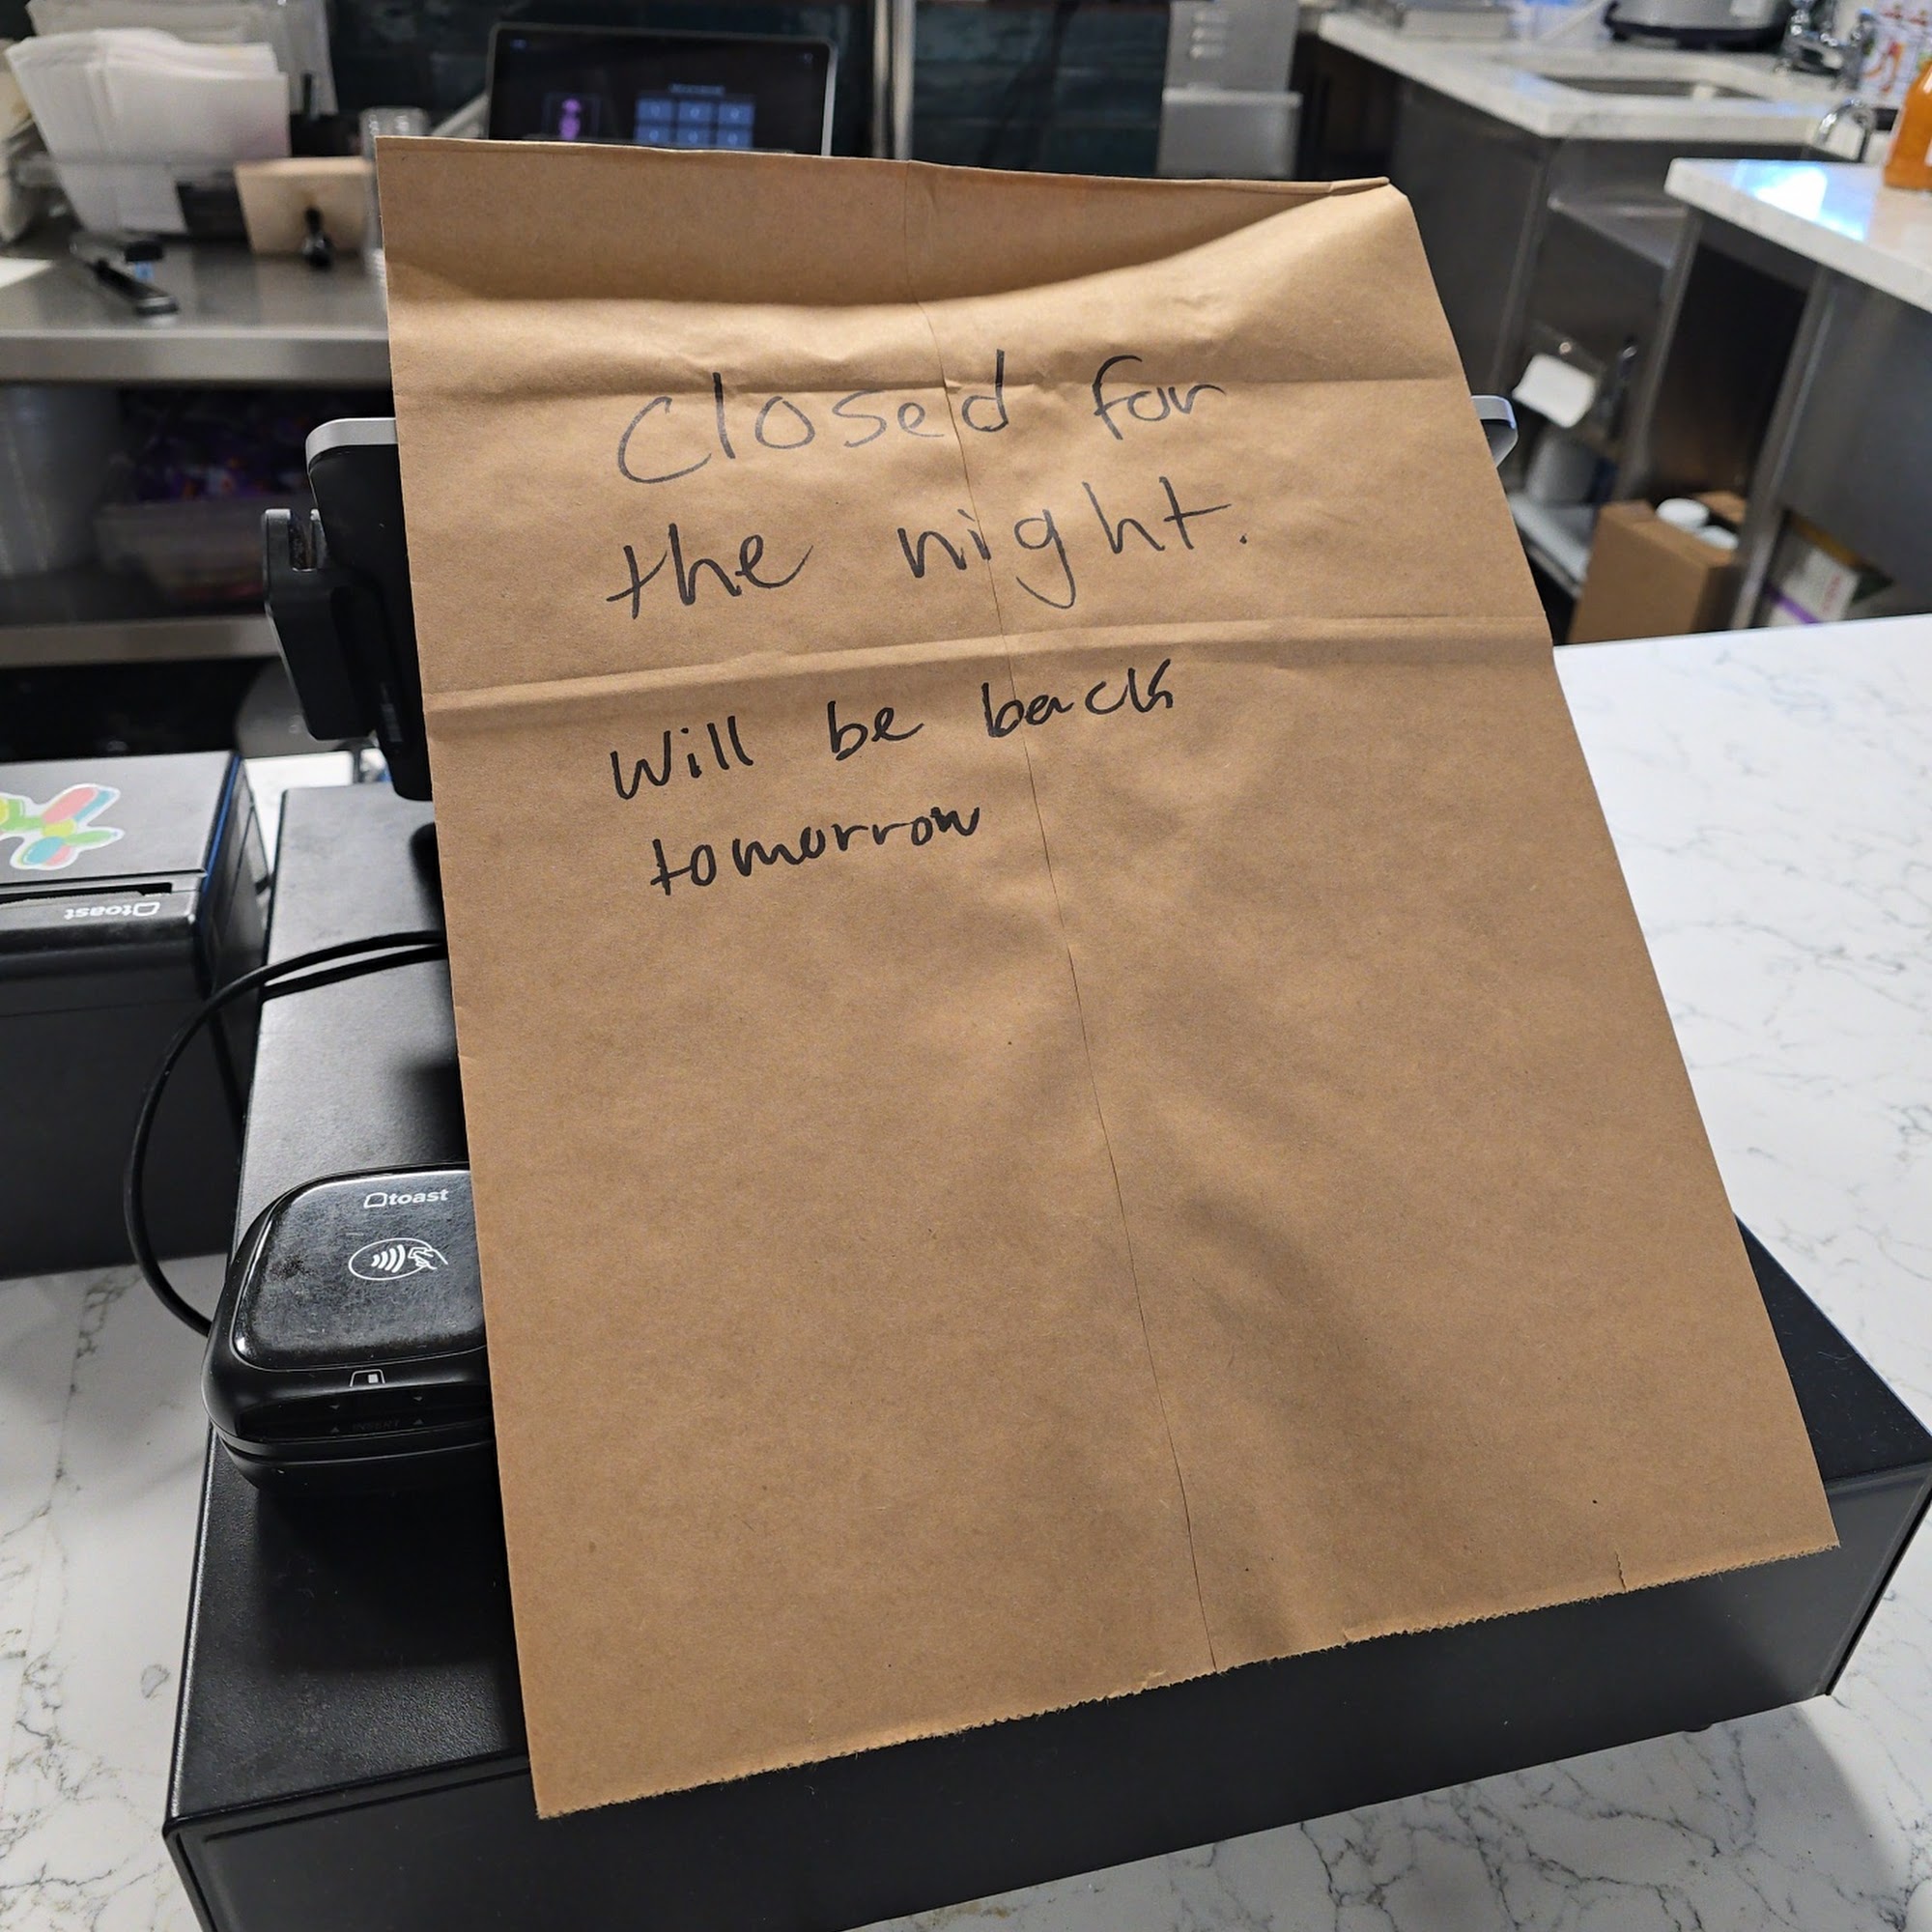 Closed for
the night.
Will be back
tomorrow
toast
toast
INSERT